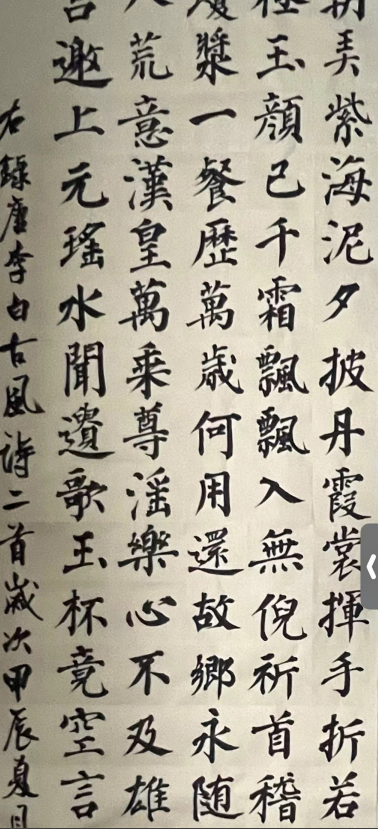 弄紫海泥夕披丹霞裳揮手折若
極玉顏已千霜飄飄入無倪祈首稽
瓊漿一餐歷萬歲何用還故鄉永隨
八荒意漢皇萬乘尊淫樂心不及雄
宮邀上元瑤水聞遺歌玉杯竟空言
右錄唐李白古風詩二首歲次甲辰夏月